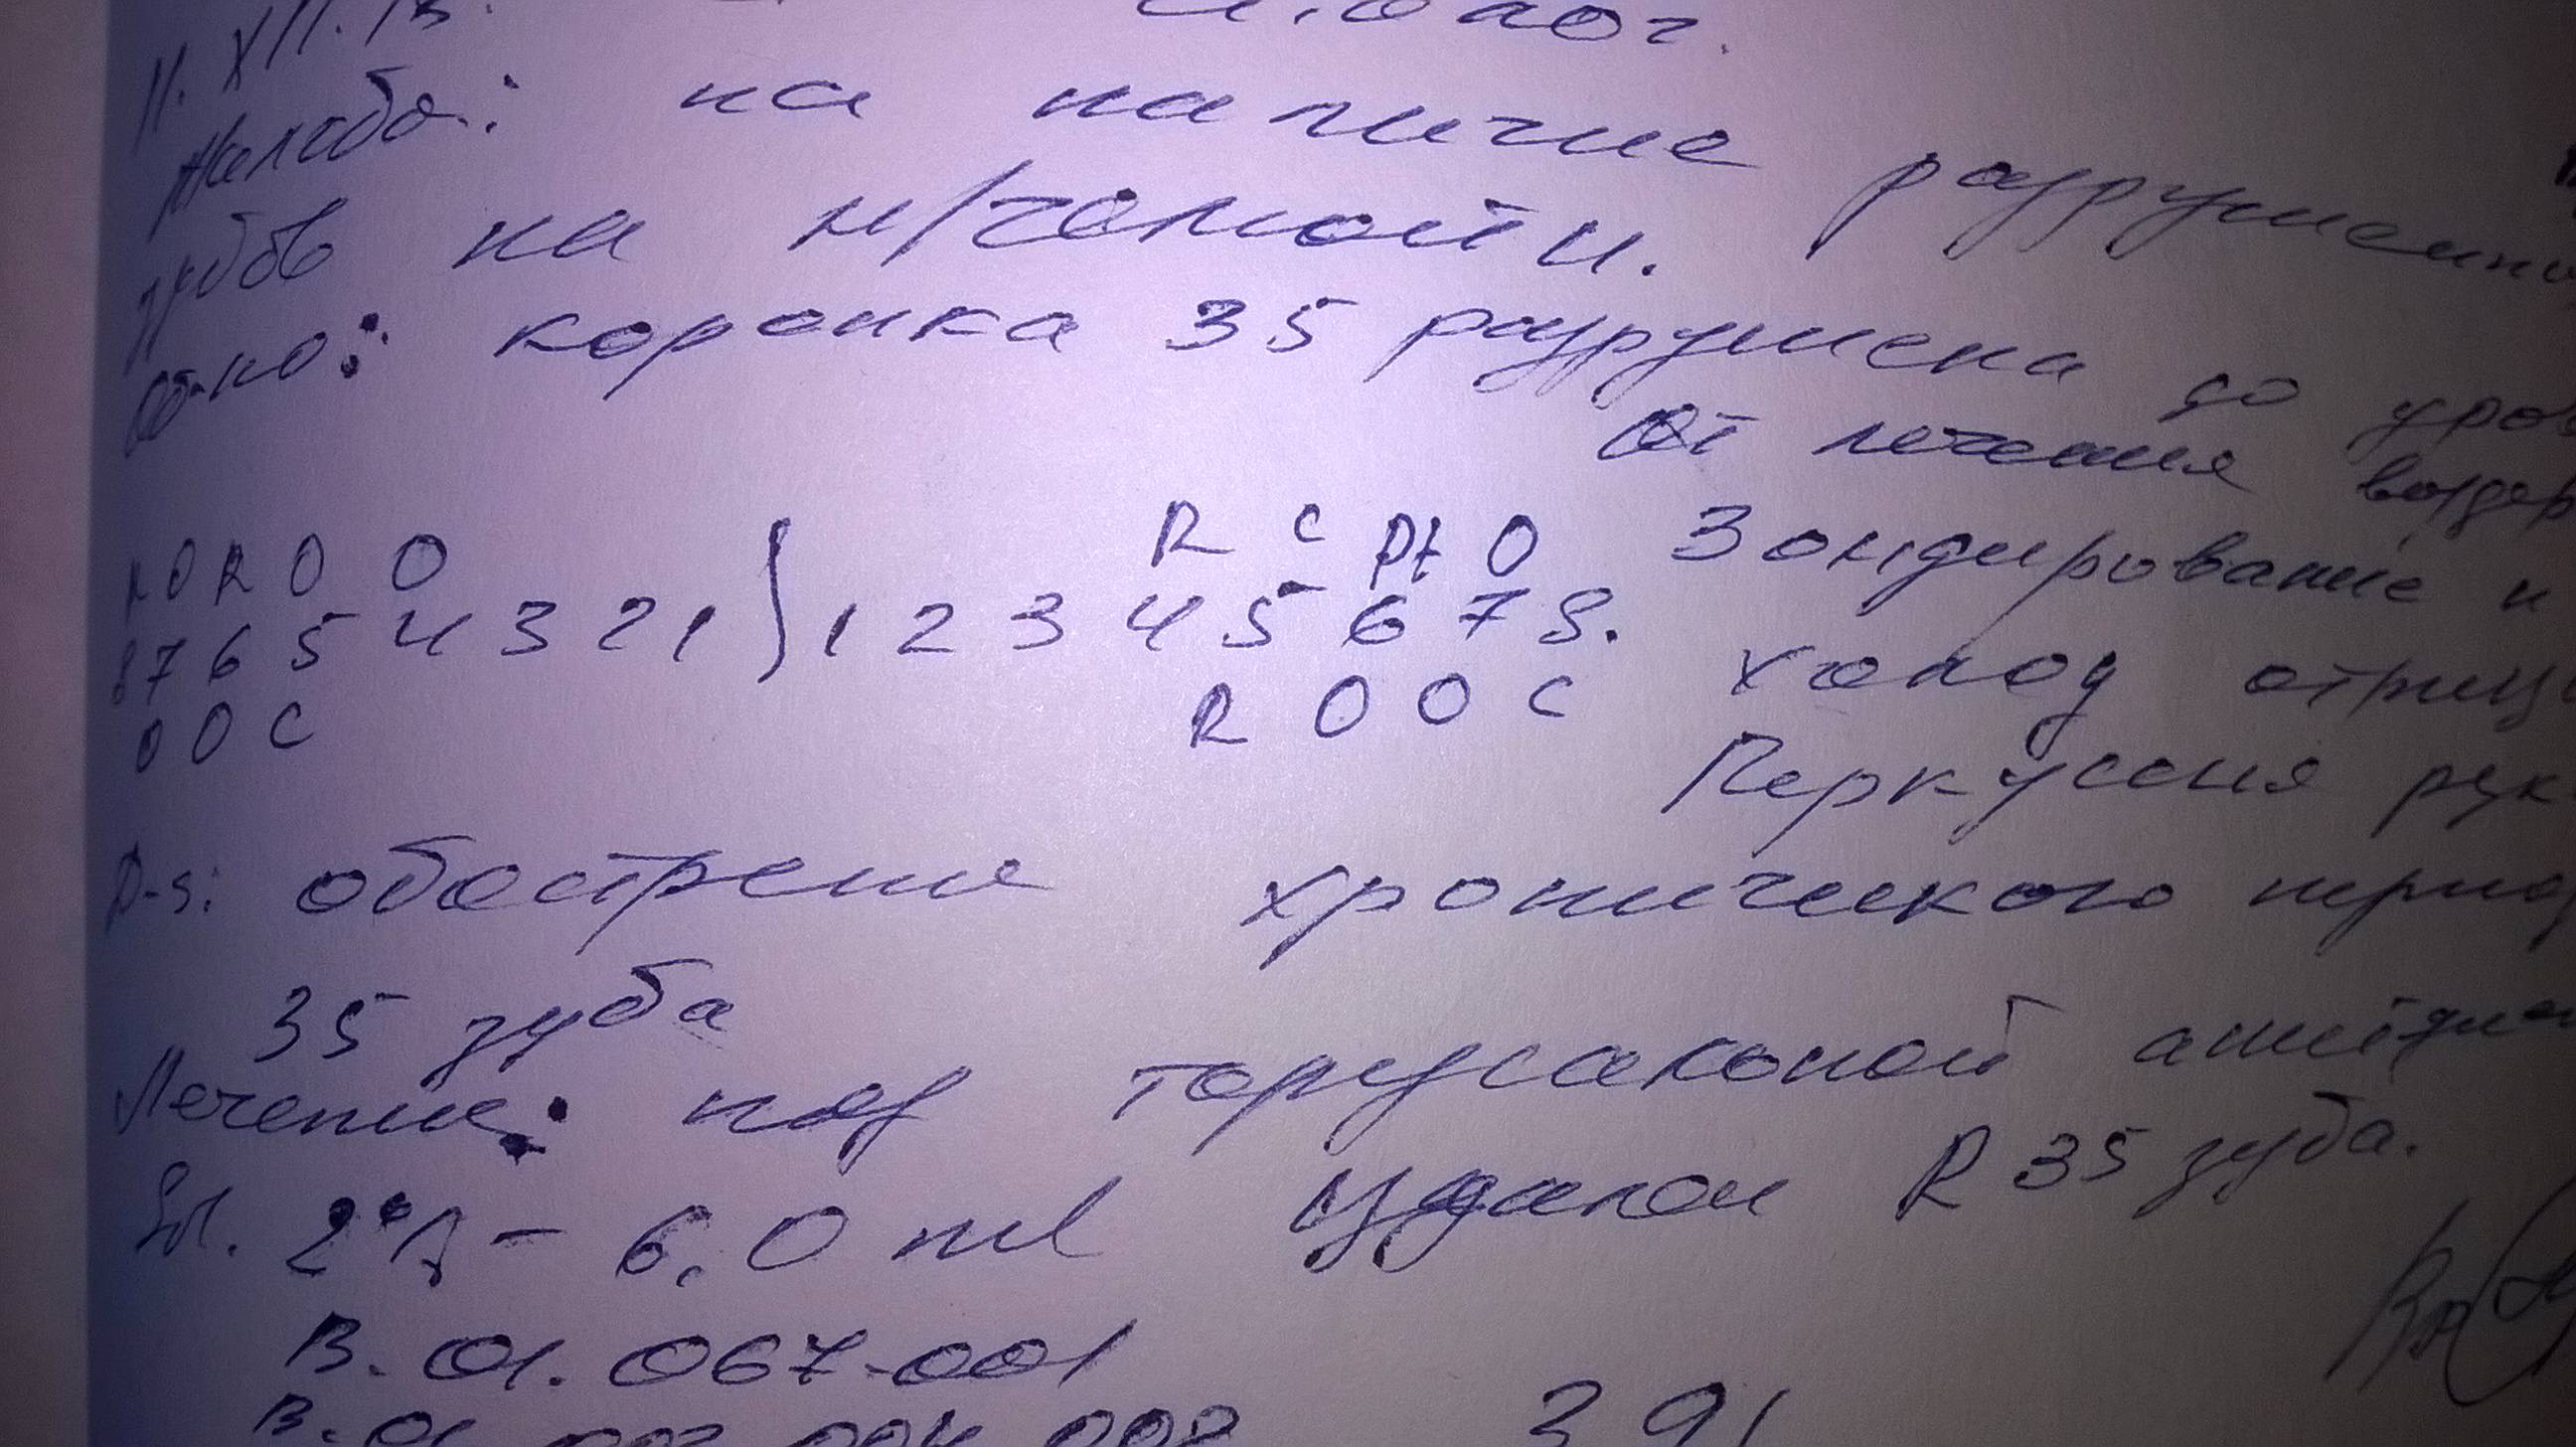 11. XII. 13.
Жалоба: на наличие разрушенно
зубов на н/челюсти.
Об-но: коронка 35 разрушена до уров
От лечения воздер
R O R O O R C Pt O Зондирование и
8 7 6 5 4 3 2 1 | 1 2 3 4 5 6 7 8. холод отриц
O O C R O O C
Перкуссия рук
D-s: обострение хронического перио
35 зуба
Лечение: под торусальной анестези
Sol. 6,0 ml удален R 35 зуба.
B. 01. 067-001
B. 01 391